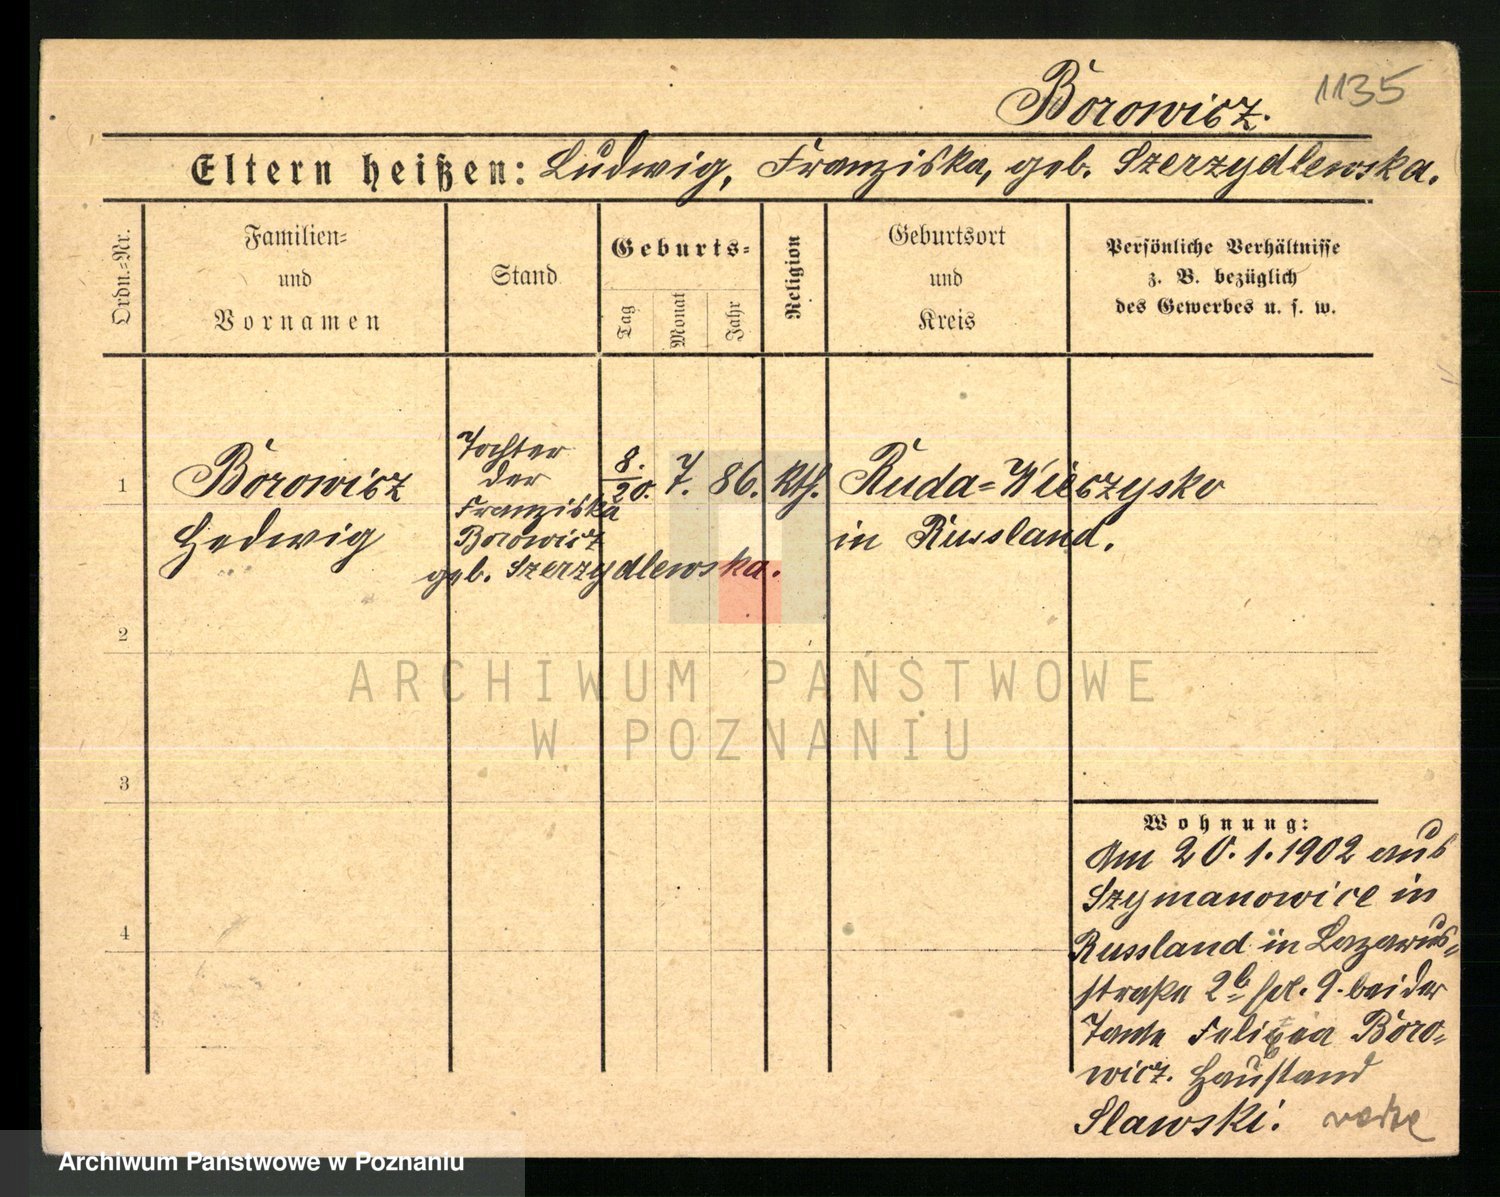 Borowicz. 1135
Eltern heißen: Ludwig, Franziska, geb. Szerzydlewska.
Ordn.=Nr.
Familien=
und
Vornamen
Stand
Geburts=
Tag
Monat
Jahr
Religion
Geburtsort
und
Kreis
Persönliche Verhältnisse
z. B. bezüglich
des Gewerbes u. s. w.
1
Borowicz
Hedwig
Tochter
der
Franziska
Borowicz
geb. Szerzydlewska.
8./20. 7. 86. Kth.
Ruda=Wieczysko
in Russland.
2
3
4
Wohnung:
Am 20.1.1902 aus
Szymanowice in
Russland in Lazarus=
straße 2b 9. bei der
Tante Boro=
wicz. Hausstand
Slawski.
ARCHIWUM PAŃSTWOWE
W POZNANIU
Archiwum Państwowe w Poznaniu